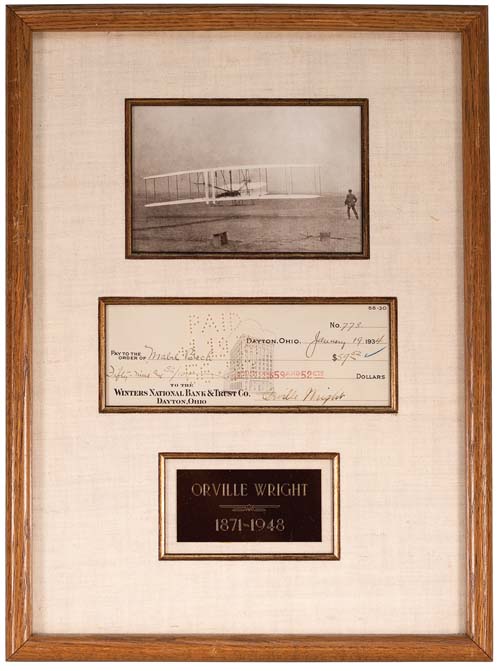 56-30
PAID
No. 773
DAYTON, OHIO. January 19 1934
PAY TO THE
ORDER OF Mabel Beck $59 52
Fifty-nine & 52/ 59 AND 52 CTS DOLLARS
TO THE
WINTERS NATIONAL BANK & TRUST CO.
DAYTON, OHIO
Orville Wright
ORVILLE WRIGHT
1871-1948